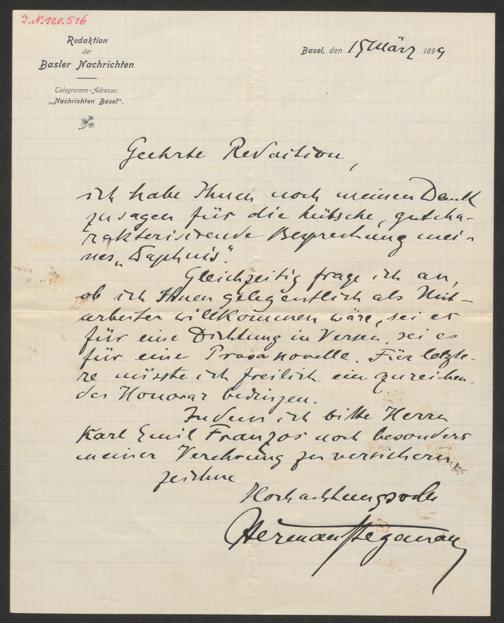 I.N. 120.516
Redaktion
der
Basler Nachrichten
Telegramm-Adresse:
„Nachrichten Basel".
Basel, den 15 März 1899
Geehrte Redaktion,
ich habe Ihnen noch meinen Dank
zu sagen für die hübsche, gutcha-
rakterisirende Besprechung mei-
nes „Daphnis".
Gleichzeitig frage ich an,
ob ich Ihnen gelegentlich als Mit-
arbeiter willkommen wäre, sei es
für eine Dichtung in Versen, sei es
für eine Prosanovelle. Für letzte-
re müsste ich freilich ein zureichen-
des Honorar bedingen.
Indem ich bitte Herrn
Karl Emil Franzos noch besonders
meiner Verehrung zu versichern,
zeichne
Hochachtungsvoll
Herman Stegeman